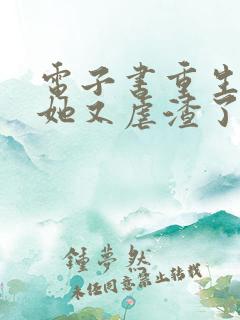 電子書重生
她又虐渣了
鍾夢然
未经同意禁止转载